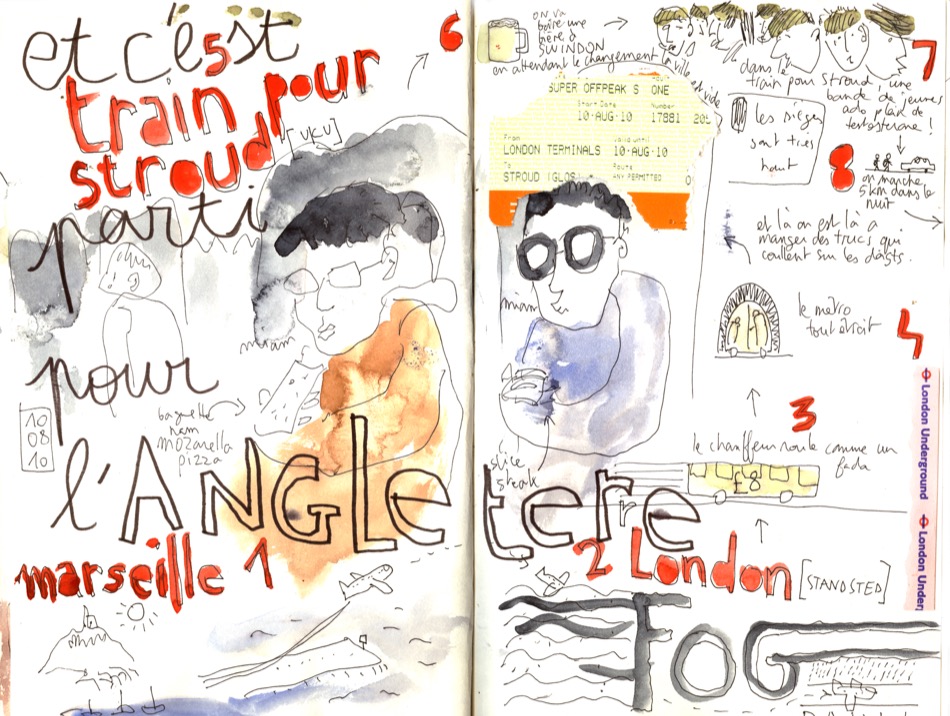 et c'est
train pour
stroud
[UKU]
6
parti
pour
l'ANGLEterre
10
08
10
miam
baguette
mozarella
pizza
marseille 1
on va
boire une
bière à
SWINDON
en attendant le changement la ville est vide
SUPER OFFPEAK S ONE
Start Date Number
10·AUG·10 17881
From Valid until
LONDON TERMINALS 10·AUG·10
To Route
STROUD (GLOS. ANY PERMITTED 0
7
dans le
train pour Stroud, une
bande de jeunes
ado plein de
testosterone !
les sièges
sont très
haut
8
on marche
5 km dans le
nuit
et là on est là à
manger des trucs qui
coulent sur les doigts.
miam
slice
steak
le metro
tout étroit
4
London Underground
London Under
3
le chauffeur roule comme un
fada
£8
2 London [STANDSTED]
FOG